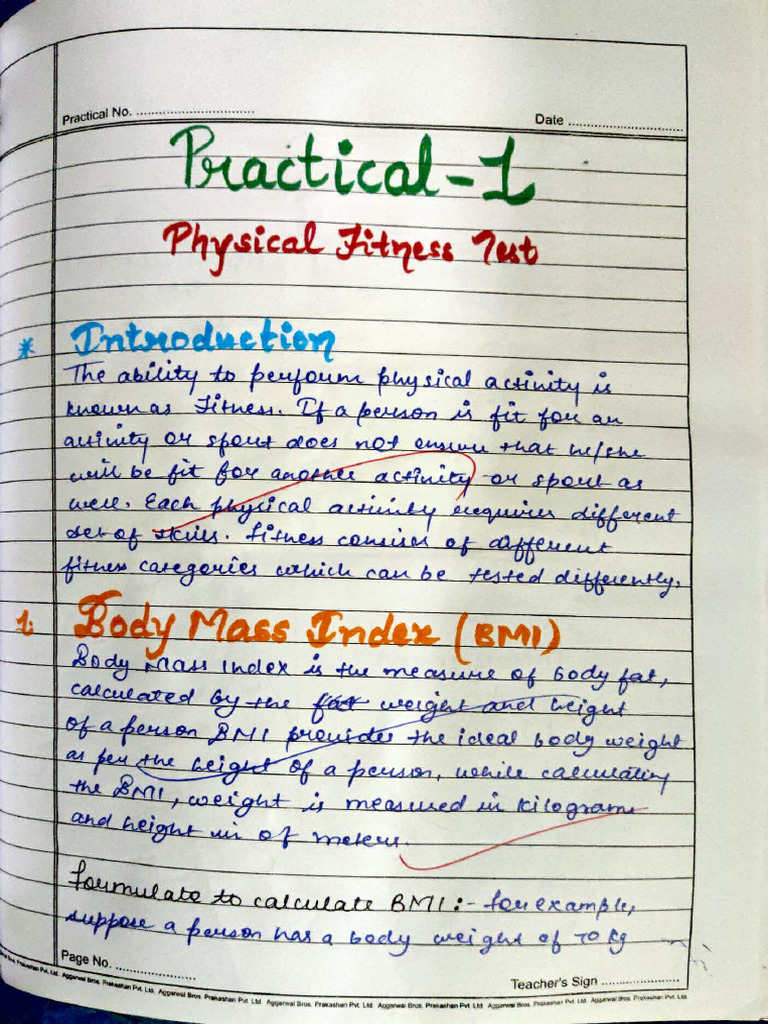 Practical No. ..............................
Date ..............................
Practical-1
Physical Fitness Test
* Introduction
The ability to perform physical activity is
known as Fitness. If a person is fit for an
activity or sport does not ensure that he/she
will be fit for another activity or sport as
well. Each physical activity requires different
set of skills. Fitness consists of different
fitness categories which can be tested differently.
1. Body Mass Index (BMI)
Body Mass Index is the measure of body fat,
calculated by the fat weight and height
of a person BMI provides the ideal body weight
as per the height of a person, while calculating
the BMI, weight is measured in kilograms
and height in of meters.
Formulate to calculate BMI :- for example,
suppose a person has a body weight of 70 kg
Page No. ....................
Teacher's Sign ....................
Prakashan Pvt. Ltd. Aggarwal Bros. Prakashan Pvt. Ltd. Aggarwal Bros. Prakashan Pvt. Ltd. Aggarwal Bros. Prakashan Pvt. Ltd. Aggarwal Bros. Prakashan Pvt. Ltd. Aggarwal Bros. Prakashan Pvt. Ltd. Aggarwal Bros. Prakashan Pvt. Ltd.